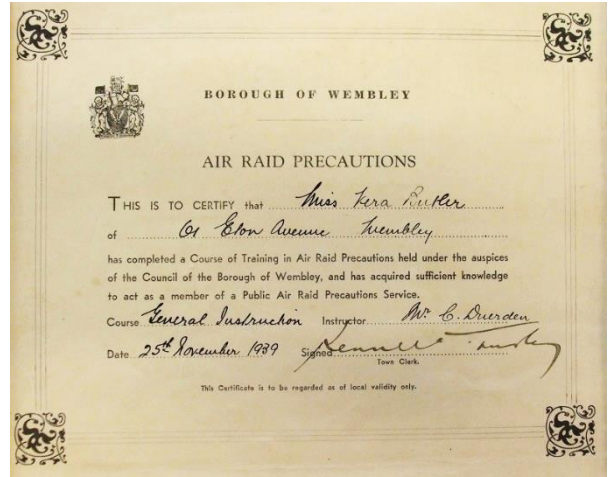 BOROUGH OF WEMBLEY
AIR RAID PRECAUTIONS
THIS IS TO CERTIFY that Miss Vera Butler
of 61 Eton Avenue Wembley
has completed a Course of Training in Air Raid Precautions held under the auspices
of the Council of the Borough of Wembley, and has acquired sufficient knowledge
to act as a member of a Public Air Raid Precautions Service.
Course General Instruction Instructor Mr C. Druerden
Date 25th November 1939 Signed Kenneth
Town Clerk.
This Certificate is to be regarded as of local validity only.